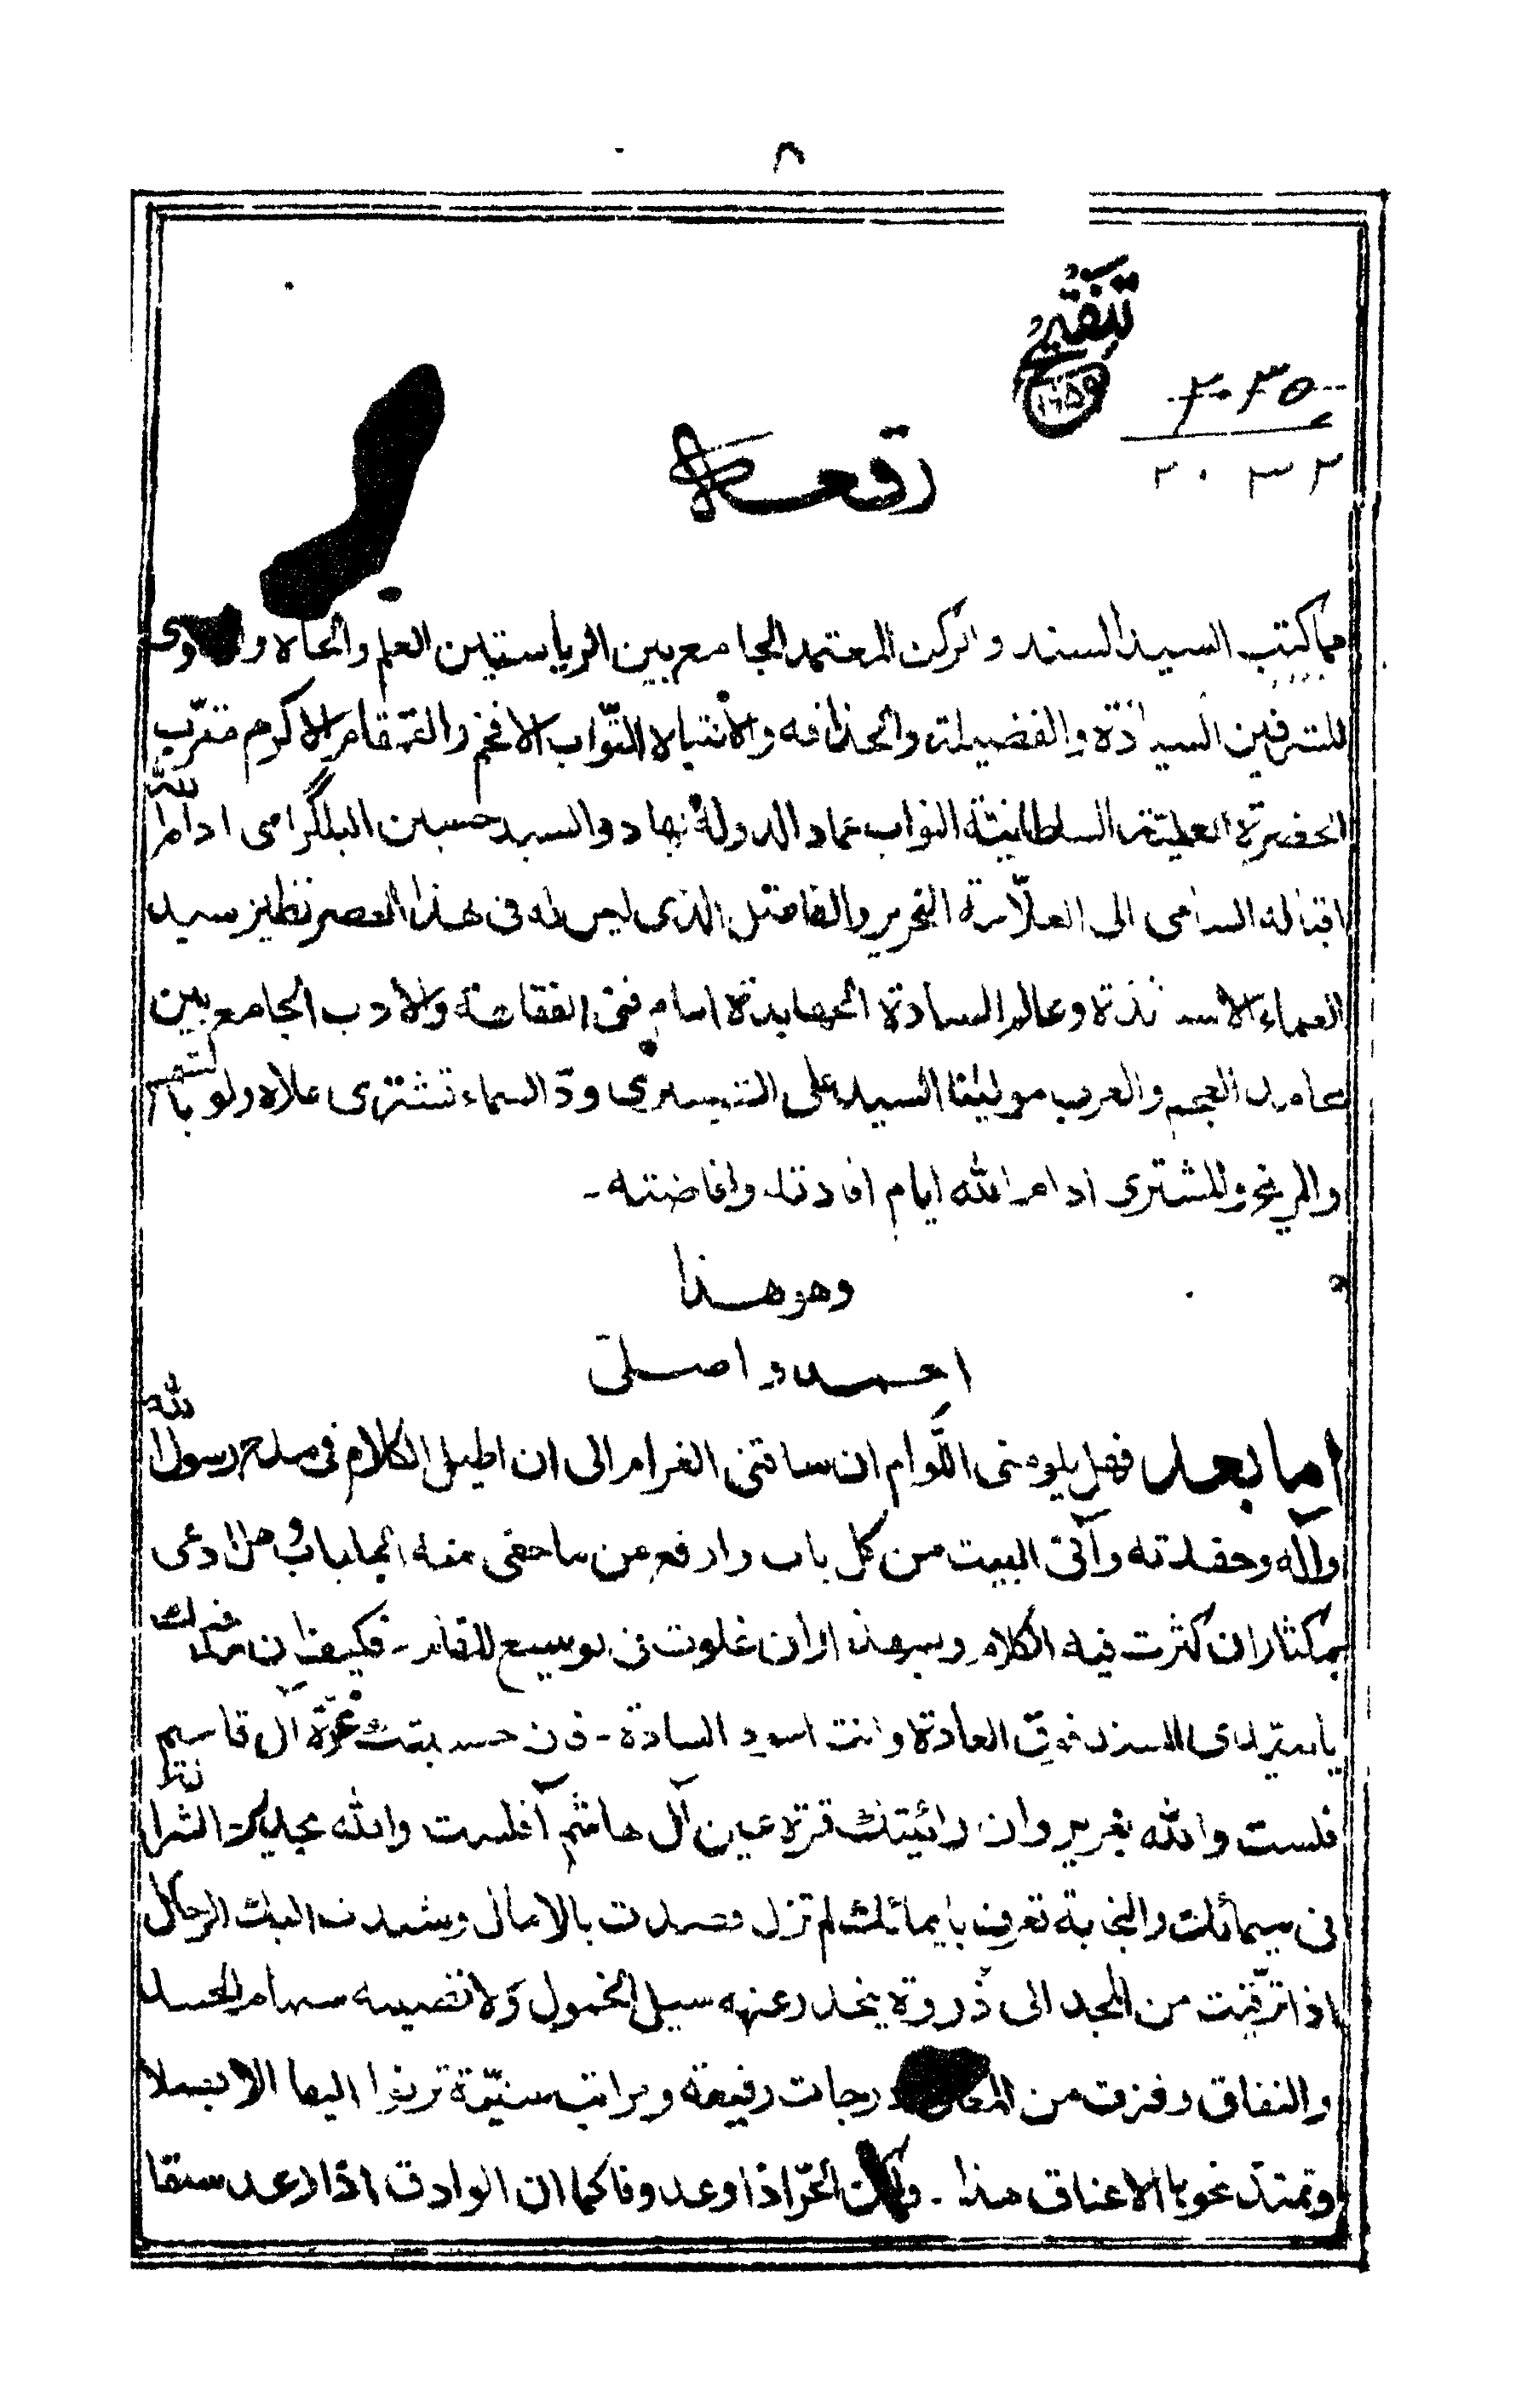 ٨
تنقيح
٢٠٣٥
٢٠٣٢
رقعة
مما كتب السيد السند والركن المعتمد الجامع بين الرياستين العلم والجاه
للشرفين السيادة والفضيلة والحذاقه والانتباه النوّاب الافخم والقمقام الاكرم مقرّب
الحضرة العليّة السلطانية النواب عماد الدولة بهادر السيد حسين البلگرامى ادام الله
اقباله السامى الى العلّامة النحرير والفاضل الذى ليس له فى هذا العصر نظير سيد
العلماء الاسـاتذة وعالم السادة الجهابذة امام فنى الفقاهة والادب الجامع بين
محامد العجم والعرب مولينا السيد على التسترى ودّ السماء تشترى علاه ولو بالشهب
والمريخ والمشترى ادام الله ايام افادته وافاضته -
وهو هذا
احمد واصلى
اما بعد فهل يلومنى اللّوام ان ساقنى الغرام الى ان اطيل الكلام فى مدح رسول الله
وآله وحفدته وآتى البيت من كل باب وارفع عن ما خفى منه الجلباب ومن ادعى
بمكثار ان كثرت فيه الكلام وبهذار ان غلوت فى توسيع المقام - فكيف ان
يا سيدى السند فوق العادة وانت اسود السادة - فان حسبتك غرّة آل قاسم
فلست والله بغرير وان رائيتك قرة عين آل هاشم آفلست والله بجدير الشرافة
فى سيمائك والنجابة تعرف بايمائك لم تزل قصدت بالامال وشدت اليك الرحال
اذا ترقيت من المجد الى ذروة ينحدر عنه سيل الخمول ولا تصيبه سهام الحسد
والنفاق وفزت من درجات رفيعة ومراتب سنيّة ترنوا اليها الابصار
وتمتدّ نحوها الاعناق هذا - ولكن الحرّ اذا وعد وفا كما ان الوادق اذا رعد سقا